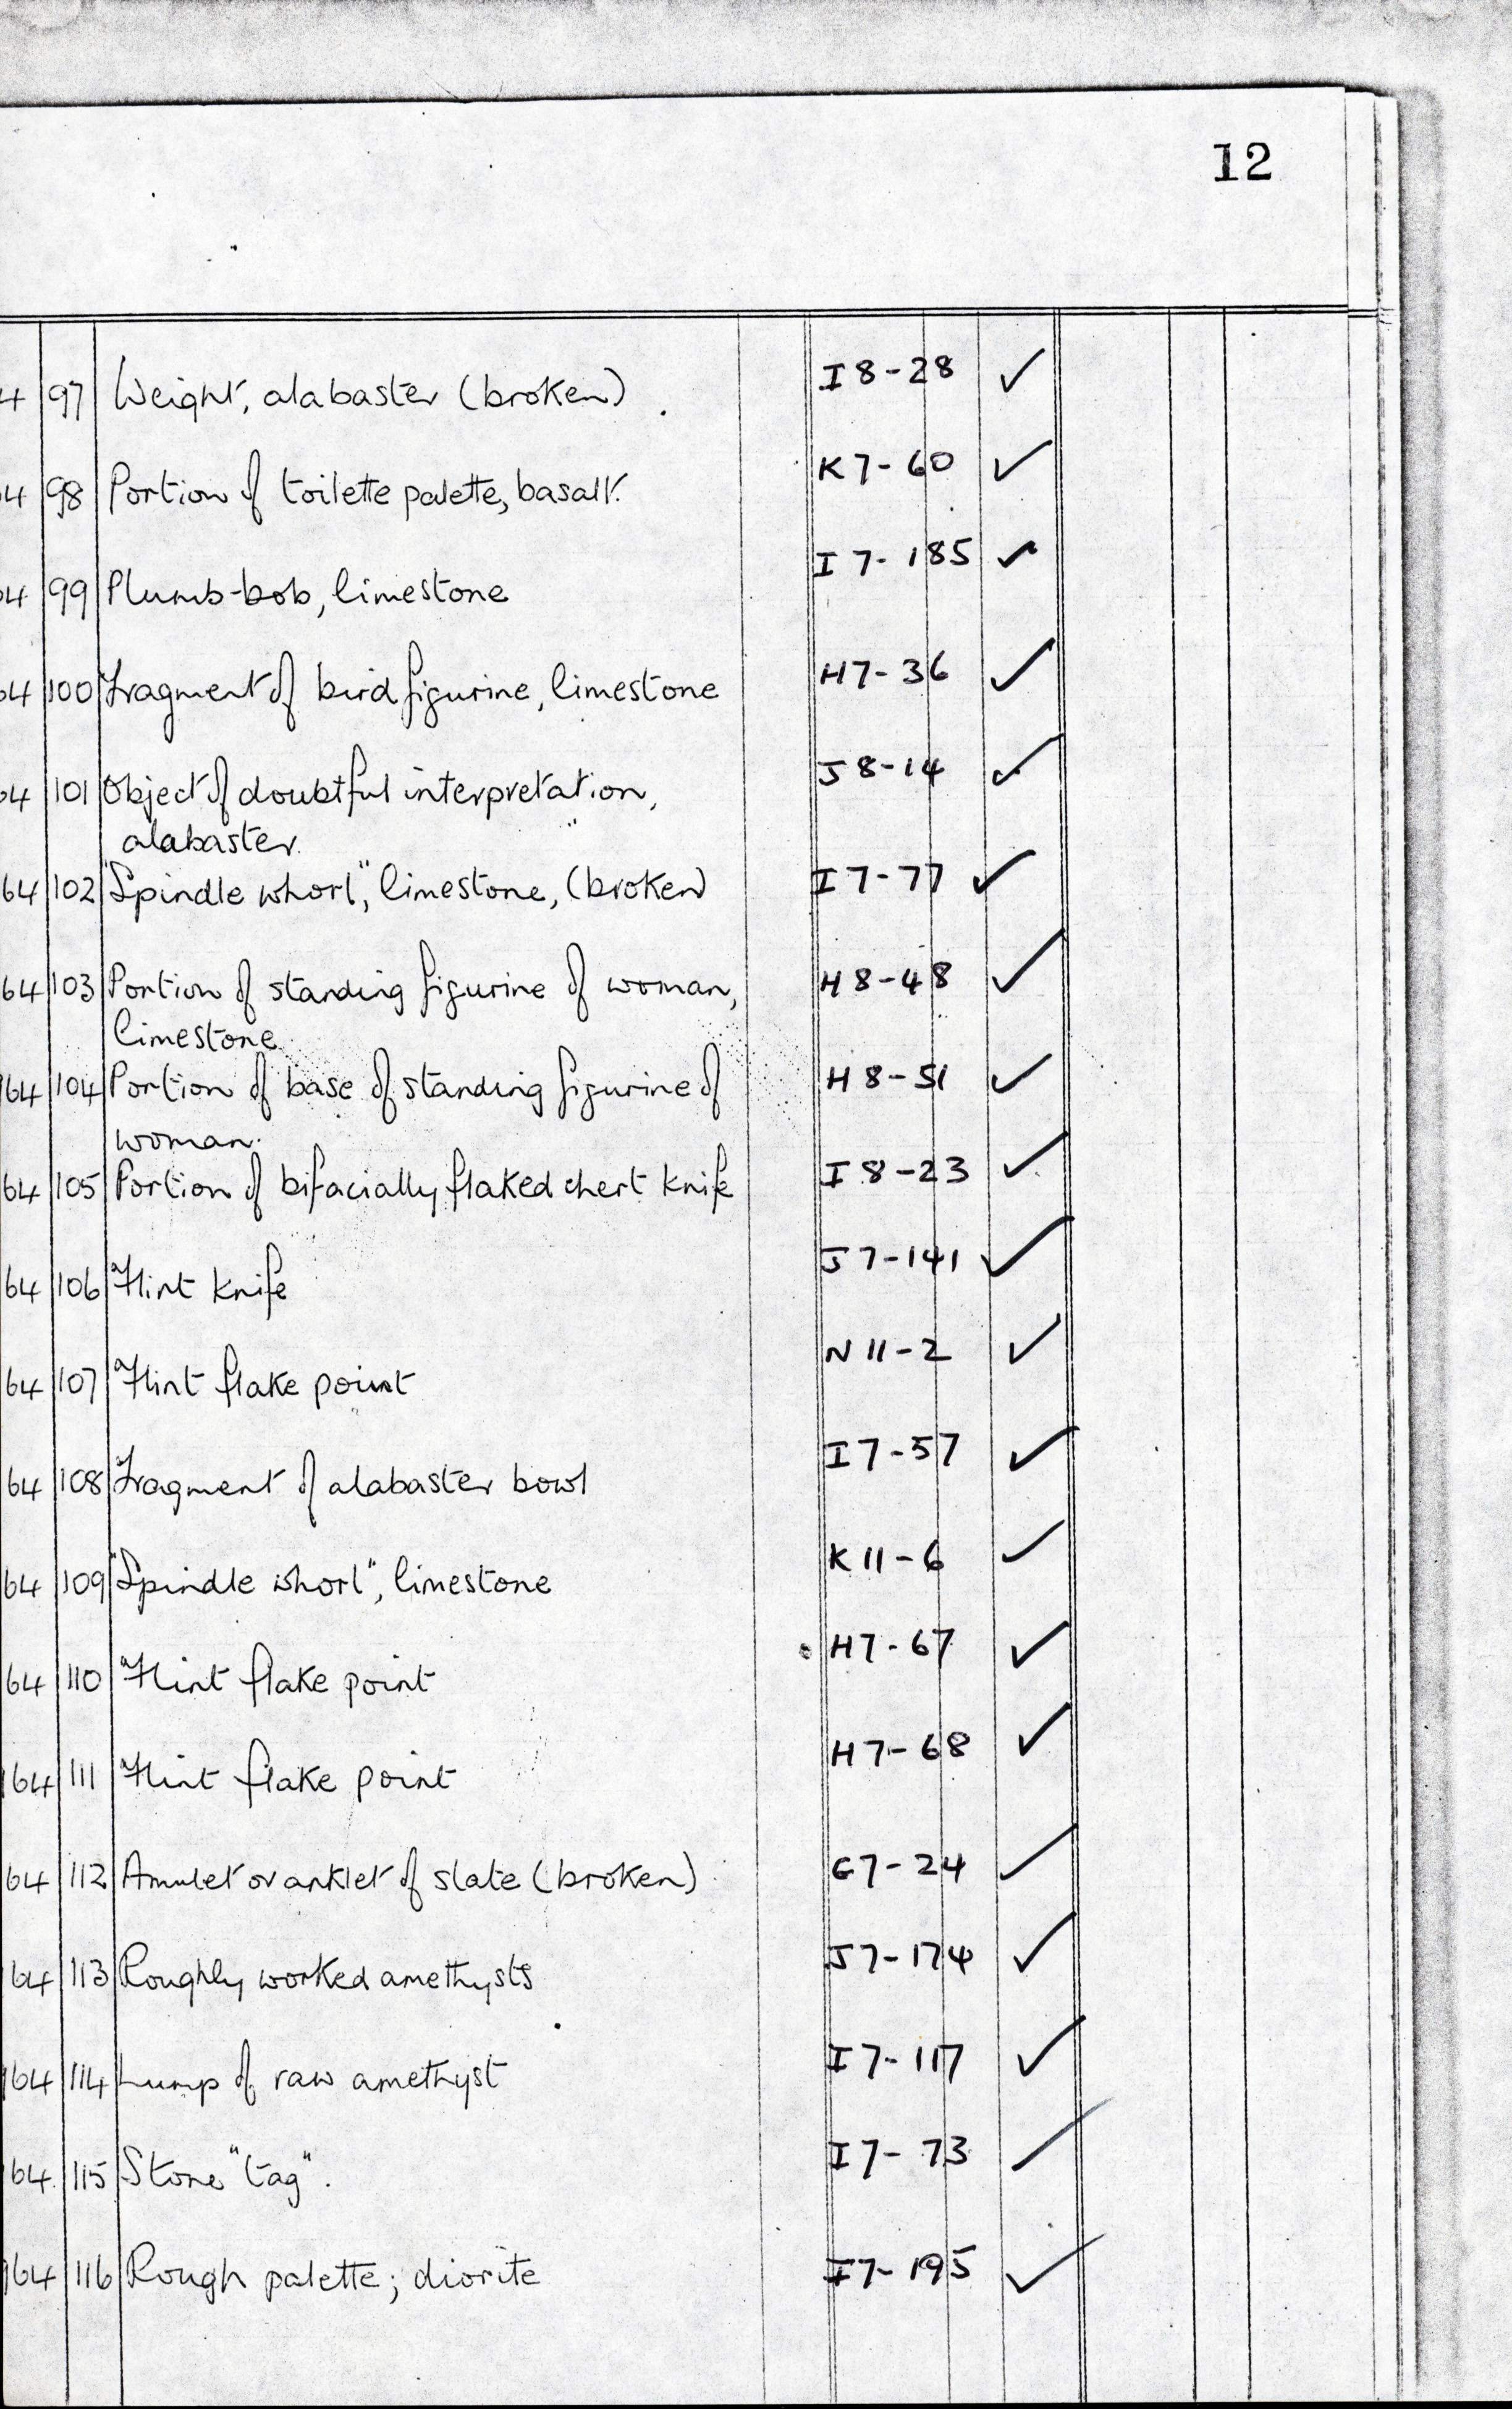 12
4 97 Weight, alabaster (broken) I8-28 ✓
64 98 Portion of toilette palette, basalt. K7-60 ✓
64 99 Plumb-bob, limestone I7-185 ✓
64 100 Fragment of bird figurine, limestone H7-36 ✓
64 101 Object of doubtful interpretation, J8-14 ✓
alabaster.
64 102 "Spindle whorl", limestone, (broken) I7-77 ✓
64 103 Portion of standing figurine of woman, H8-48 ✓
limestone.
64 104 Portion of base of standing figurine of H8-51 ✓
woman.
64 105 Portion of bifacially flaked chert knife I8-23 ✓
64 106 Flint knife J7-141 ✓
64 107 Flint flake point N11-2 ✓
64 108 Fragment of alabaster bowl I7-57 ✓
64 109 "Spindle whorl", limestone K11-6 ✓
64 110 Flint flake point H7-67 ✓
64 111 Flint flake point H7-68 ✓
64 112 Amulet or anklet of slate (broken) G7-24 ✓
64 113 Roughly worked amethysts J7-174 ✓
64 114 Lump of raw amethyst I7-117 ✓
64 115 Stone "tag". I7-73 ✓
64 116 Rough palette; diorite I7-195 ✓